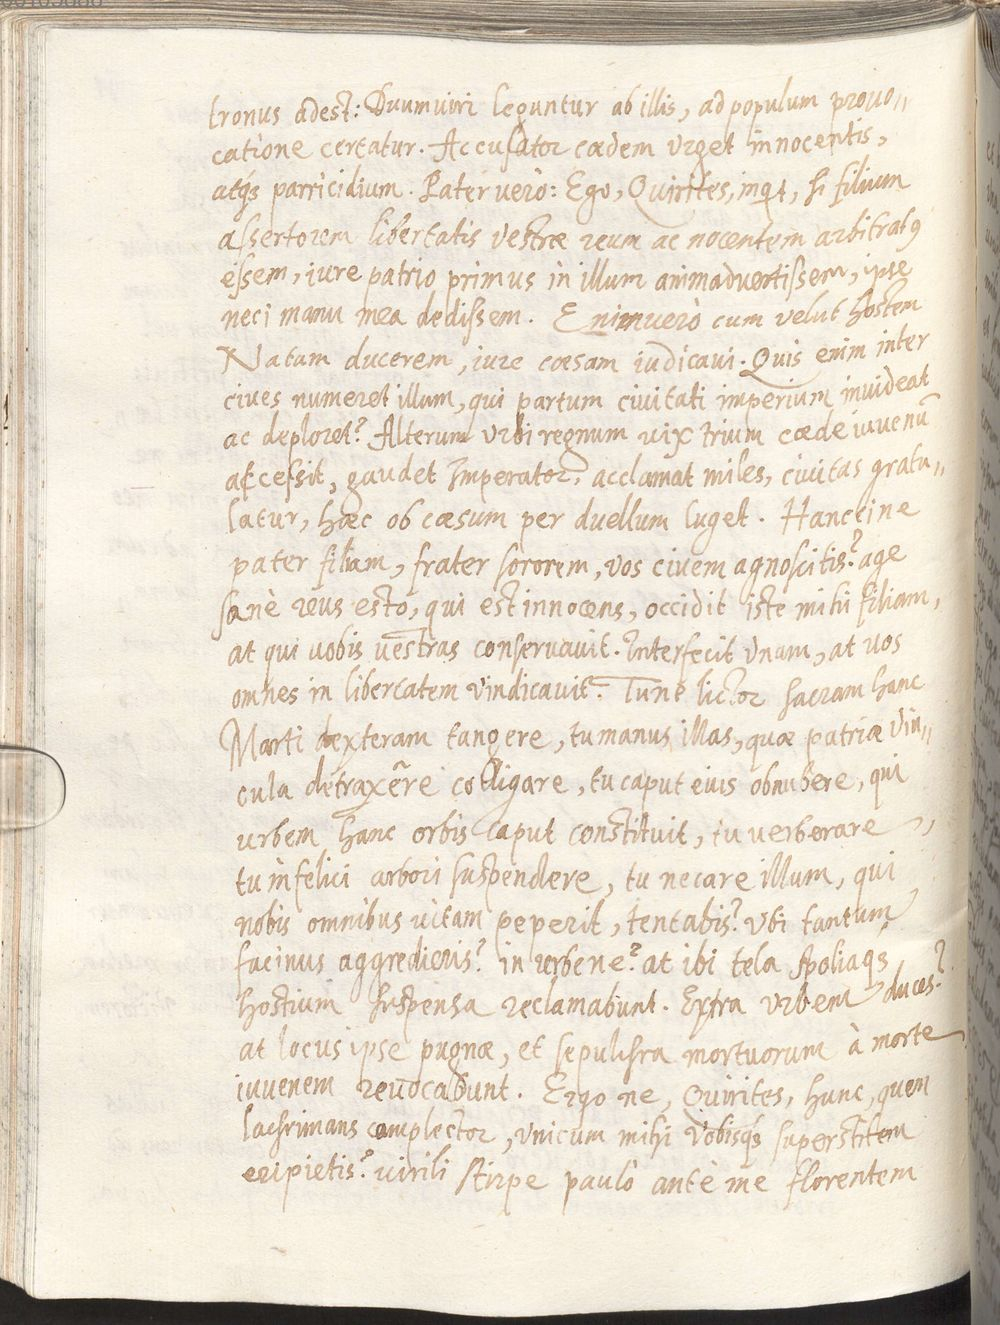 tronus adest: Duumuiri leguntur ab illis, ad populum prouo„
catione certatur. Accusator cædem vrget innocentis,
atq́; parricidium. Pater verò: Ego, Quirites, inqt, si filium
assertorem libertatis vestræ reum ac nocentem arbitratꝰ
essem, iure patrio primus in illum animaduertissem, ipse
neci manu mea dedissem. Enimuerò cum velut hostem
Natam ducerem, iure cæsam iudicaui. Quis enim inter
ciues numeret illum, qui partum ciuitati imperium inuideat
ac deploret? Alterum vrbi regnum vix trium cæde iuuenū
accessit, gaudet Imperator, acclamat miles, ciuitas gratu„
latur, hæc ob cæsum per duellum luget. Hanccine
pater filiam, frater sororem, vos ciuem agnoscitis? age
sanè reus esto, qui est innocens, occidit iste mihi filiam,
at qui uobis uestras conseruauit. Interfecit vnam, at uos
omnes in libertatem vindicauit. Tune lictor sacram hanc
Marti dexteram tangere, tu manus illas, quæ patriæ vin„
cula detraxēre colligare, tu caput eius obnubere, qui
urbem hanc orbis caput constituit, tu uerberare,
tu infelici arbori suspendere, tu necare illum, qui
nobis omnibus uitam peperit, tentabis? Vbi tantum
facinus aggredieris? in urbene? at ibi tela spoliaq;
hostium suspensa reclamabunt. Extra vrbem duces?
at locus ipse pugnæ, et sepulchra mortuorum à morte
iuuenem reuocabunt. Ergo ne, Quirites, hunc, quem
lachrimans complector, vnicum mihi vobisq́; superstitem
eripietis? uirili stirpe paulò antè me florentem